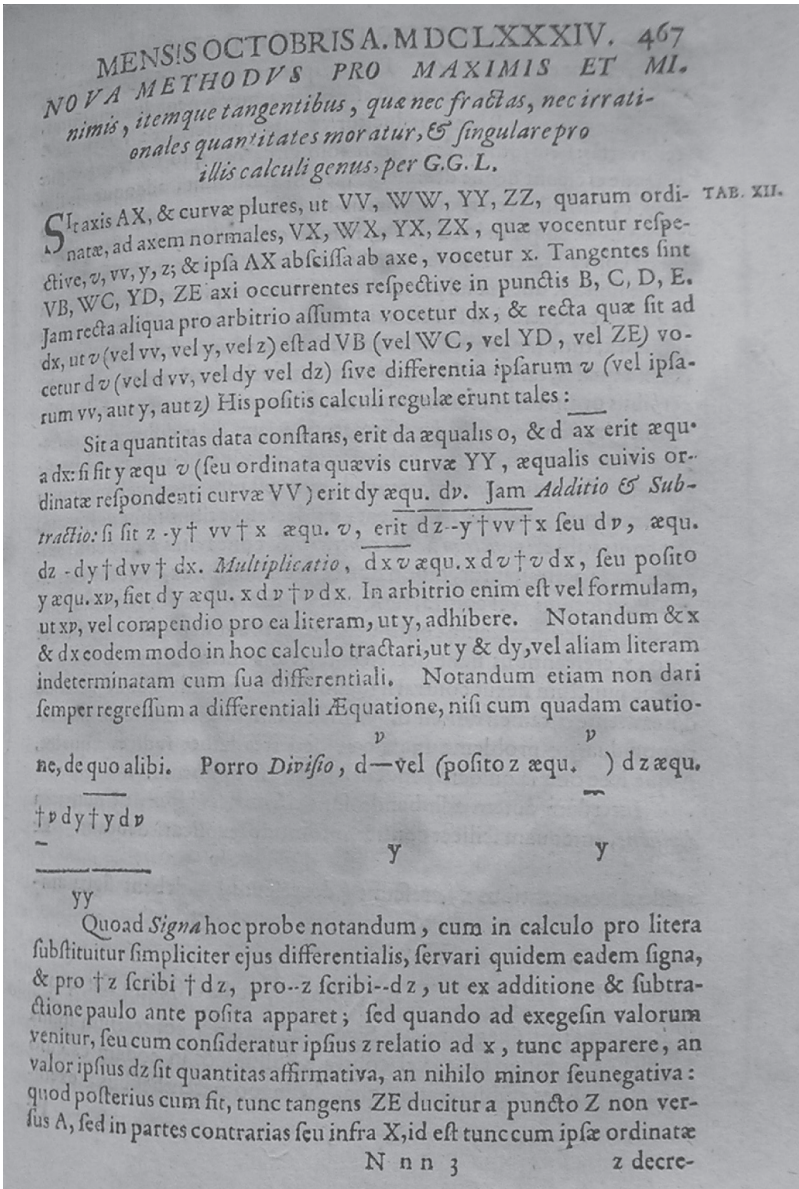 MENSIS OCTOBRIS A. MDCLXXXIV. 467
NOVA METHODVS PRO MAXIMIS ET MI.
nimis, itemque tangentibus, quæ nec fractas, nec irrati-
onales quantitates moratur, & singulare pro
illis calculi genus, per G.G. L.
SIt axis AX, & curvæ plures, ut VV, WW, YY, ZZ, quarum ordi- TAB. XII.
natæ, ad axem normales, VX, WX, YX, ZX, quæ vocentur respe-
ctive, v, vv, y, z; & ipsa AX abscissa ab axe, vocetur x. Tangentes sint
VB, WC, YD, ZE axi occurrentes respective in punctis B, C, D, E.
Jam recta aliqua pro arbitrio assumta vocetur dx, & recta quæ sit ad
dx, ut v (vel vv, vel y, vel z) est ad VB (vel WC, vel YD, vel ZE) vo-
cetur d v (vel d vv, vel dy vel dz) sive differentia ipsarum v (vel ipsa-
rum vv, aut y, aut z) His positis calculi regulæ erunt tales:
Sit a quantitas data constans, erit da æqualis 0, & d ax erit æqu.
a dx: si sit y æqu v (seu ordinata quævis curvæ YY, æqualis cuivis or-
dinatæ respondenti curvæ VV) erit dy æqu. dv. Jam Additio & Sub-
tractio: si sit z -y† vv† x æqu. v, erit dz--y†vv†x seu dv, æqu.
dz -dy†dvv† dx. Multiplicatio, dxv æqu. x dv†v dx, seu posito
y æqu. xv, fiet d y æqu. x dv†v dx. In arbitrio enim est vel formulam,
ut xv, vel compendio pro ea literam, ut y, adhibere. Notandum & x
& dx eodem modo in hoc calculo tractari, ut y & dy, vel aliam literam
indeterminatam cum sua differentiali. Notandum etiam non dari
semper regressum a differentiali Æquatione, nisi cum quadam cautio-
v v
ne, de quo alibi. Porro Divisio, d—vel (posito z æqu. ) d z æqu.
†v dy†y dv
y y
yy
Quoad Signa hoc probe notandum, cum in calculo pro litera
substituitur simpliciter ejus differentialis, servari quidem eadem signa,
& pro †z scribi † dz, pro--z scribi--dz, ut ex additione & subtra-
ctione paulo ante posita apparet; sed quando ad exegesin valorum
venitur, seu cum consideratur ipsius z relatio ad x, tunc apparere, an
valor ipsius dz sit quantitas affirmativa, an nihilo minor seu negativa:
quod posterius cum fit, tunc tangens ZE ducitur a puncto Z non ver-
sus A, sed in partes contrarias seu infra X, id est tunc cum ipsæ ordinatæ
N n n 3 z decre-